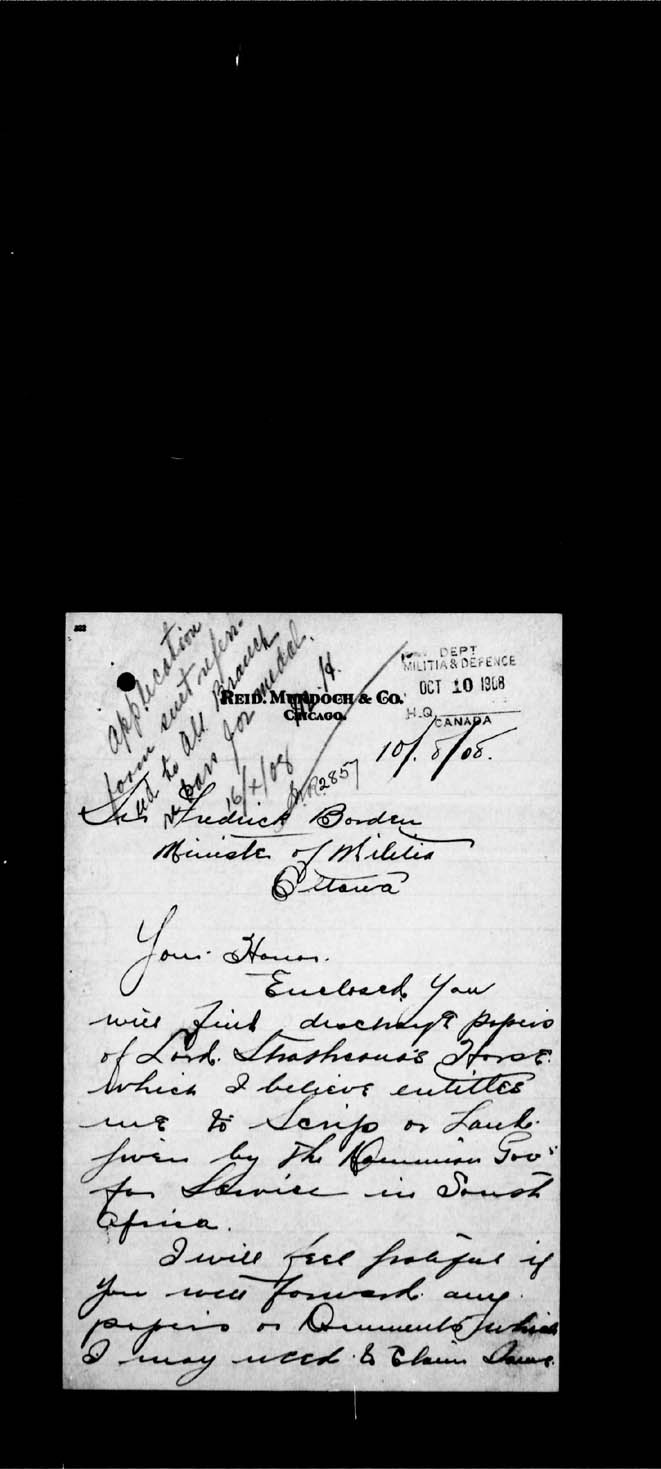 Application
form sent refer-
red to A.G. Branch
re for medal.
16/X/08
DEPT
MILITIA & DEFENCE
OCT 10 1908
H.Q.
CANADA
REID, MURDOCH & CO.
CHICAGO.
10/8/08.
2857
Sir Fredrick Borden
Ministe of Militia
Ottawa
Your Honor.
Enclosed you
will find discharge papers
of Lord Strathcona's Horse
which I believe entittes
me to Scrip or Land
given by the Dominion Govt
for Service in South
Africa.
I will feel grateful if
you will forward any
papers or Documents which
I may need to Claim Same.